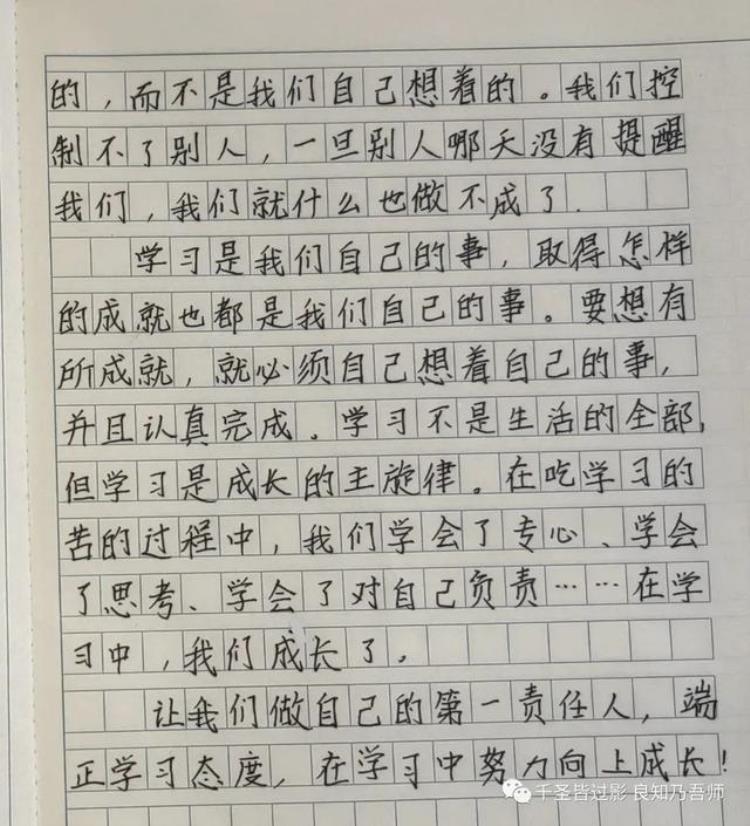 的，而不是我们自己想着的。我们控
制不了别人，一旦别人哪天没有提醒
我们，我们就什么也做不成了.
学习是我们自己的事，取得怎样
的成就也都是我们自己的事。要想有
所成就，就必须自己想着自己的事，
并且认真完成。学习不是生活的全部，
但学习是成长的主旋律。在吃学习的
苦的过程中，我们学会了专心、学会
了思考、学会了对自己负责……在学
习中，我们成长了。
让我们做自己的第一责任人，端
正学习态度，在学习中努力向上成长！
千圣皆过影 良知乃吾师